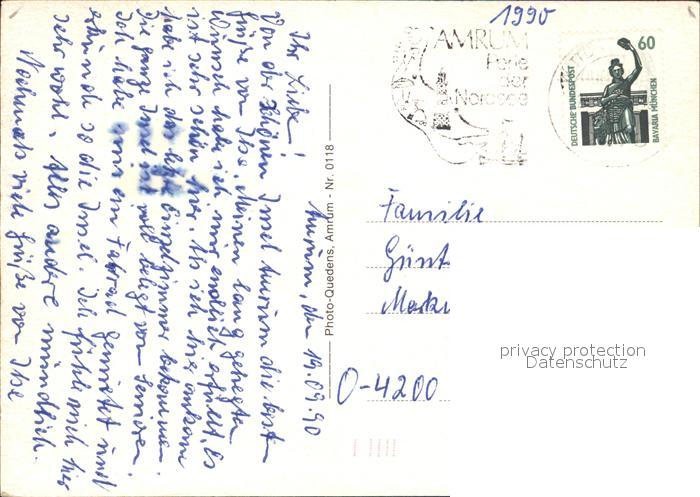 1990
AMRUM
Perle
der
Nordsee
60
DEUTSCHE BUNDESPOST
BAVARIA MÜNCHEN
Amrum, den 19.09.90
Ihr Lieben!
Von der schönen Insel Amrum die besten
Grüße von Ilse. Meinen lang gehegten
Wunsch habe ich mir endlich erfüllt. Es
ist sehr schön hier. Als ich hier ankam
habe ich das letzte Einzelzimmer bekommen.
Die ganze Insel ist voll belegt von Senioren.
Ich habe mir ein Fahrrad gemietet und
erkunde so die Insel. Ich fühle mich hier
sehr wohl. Alles andere mündlich.
Nochmals viele Grüße von Ilse
Photo-Quedens, Amrum - Nr. 0118
Familie
Günt
O-4200
privacy protection
Datenschutz